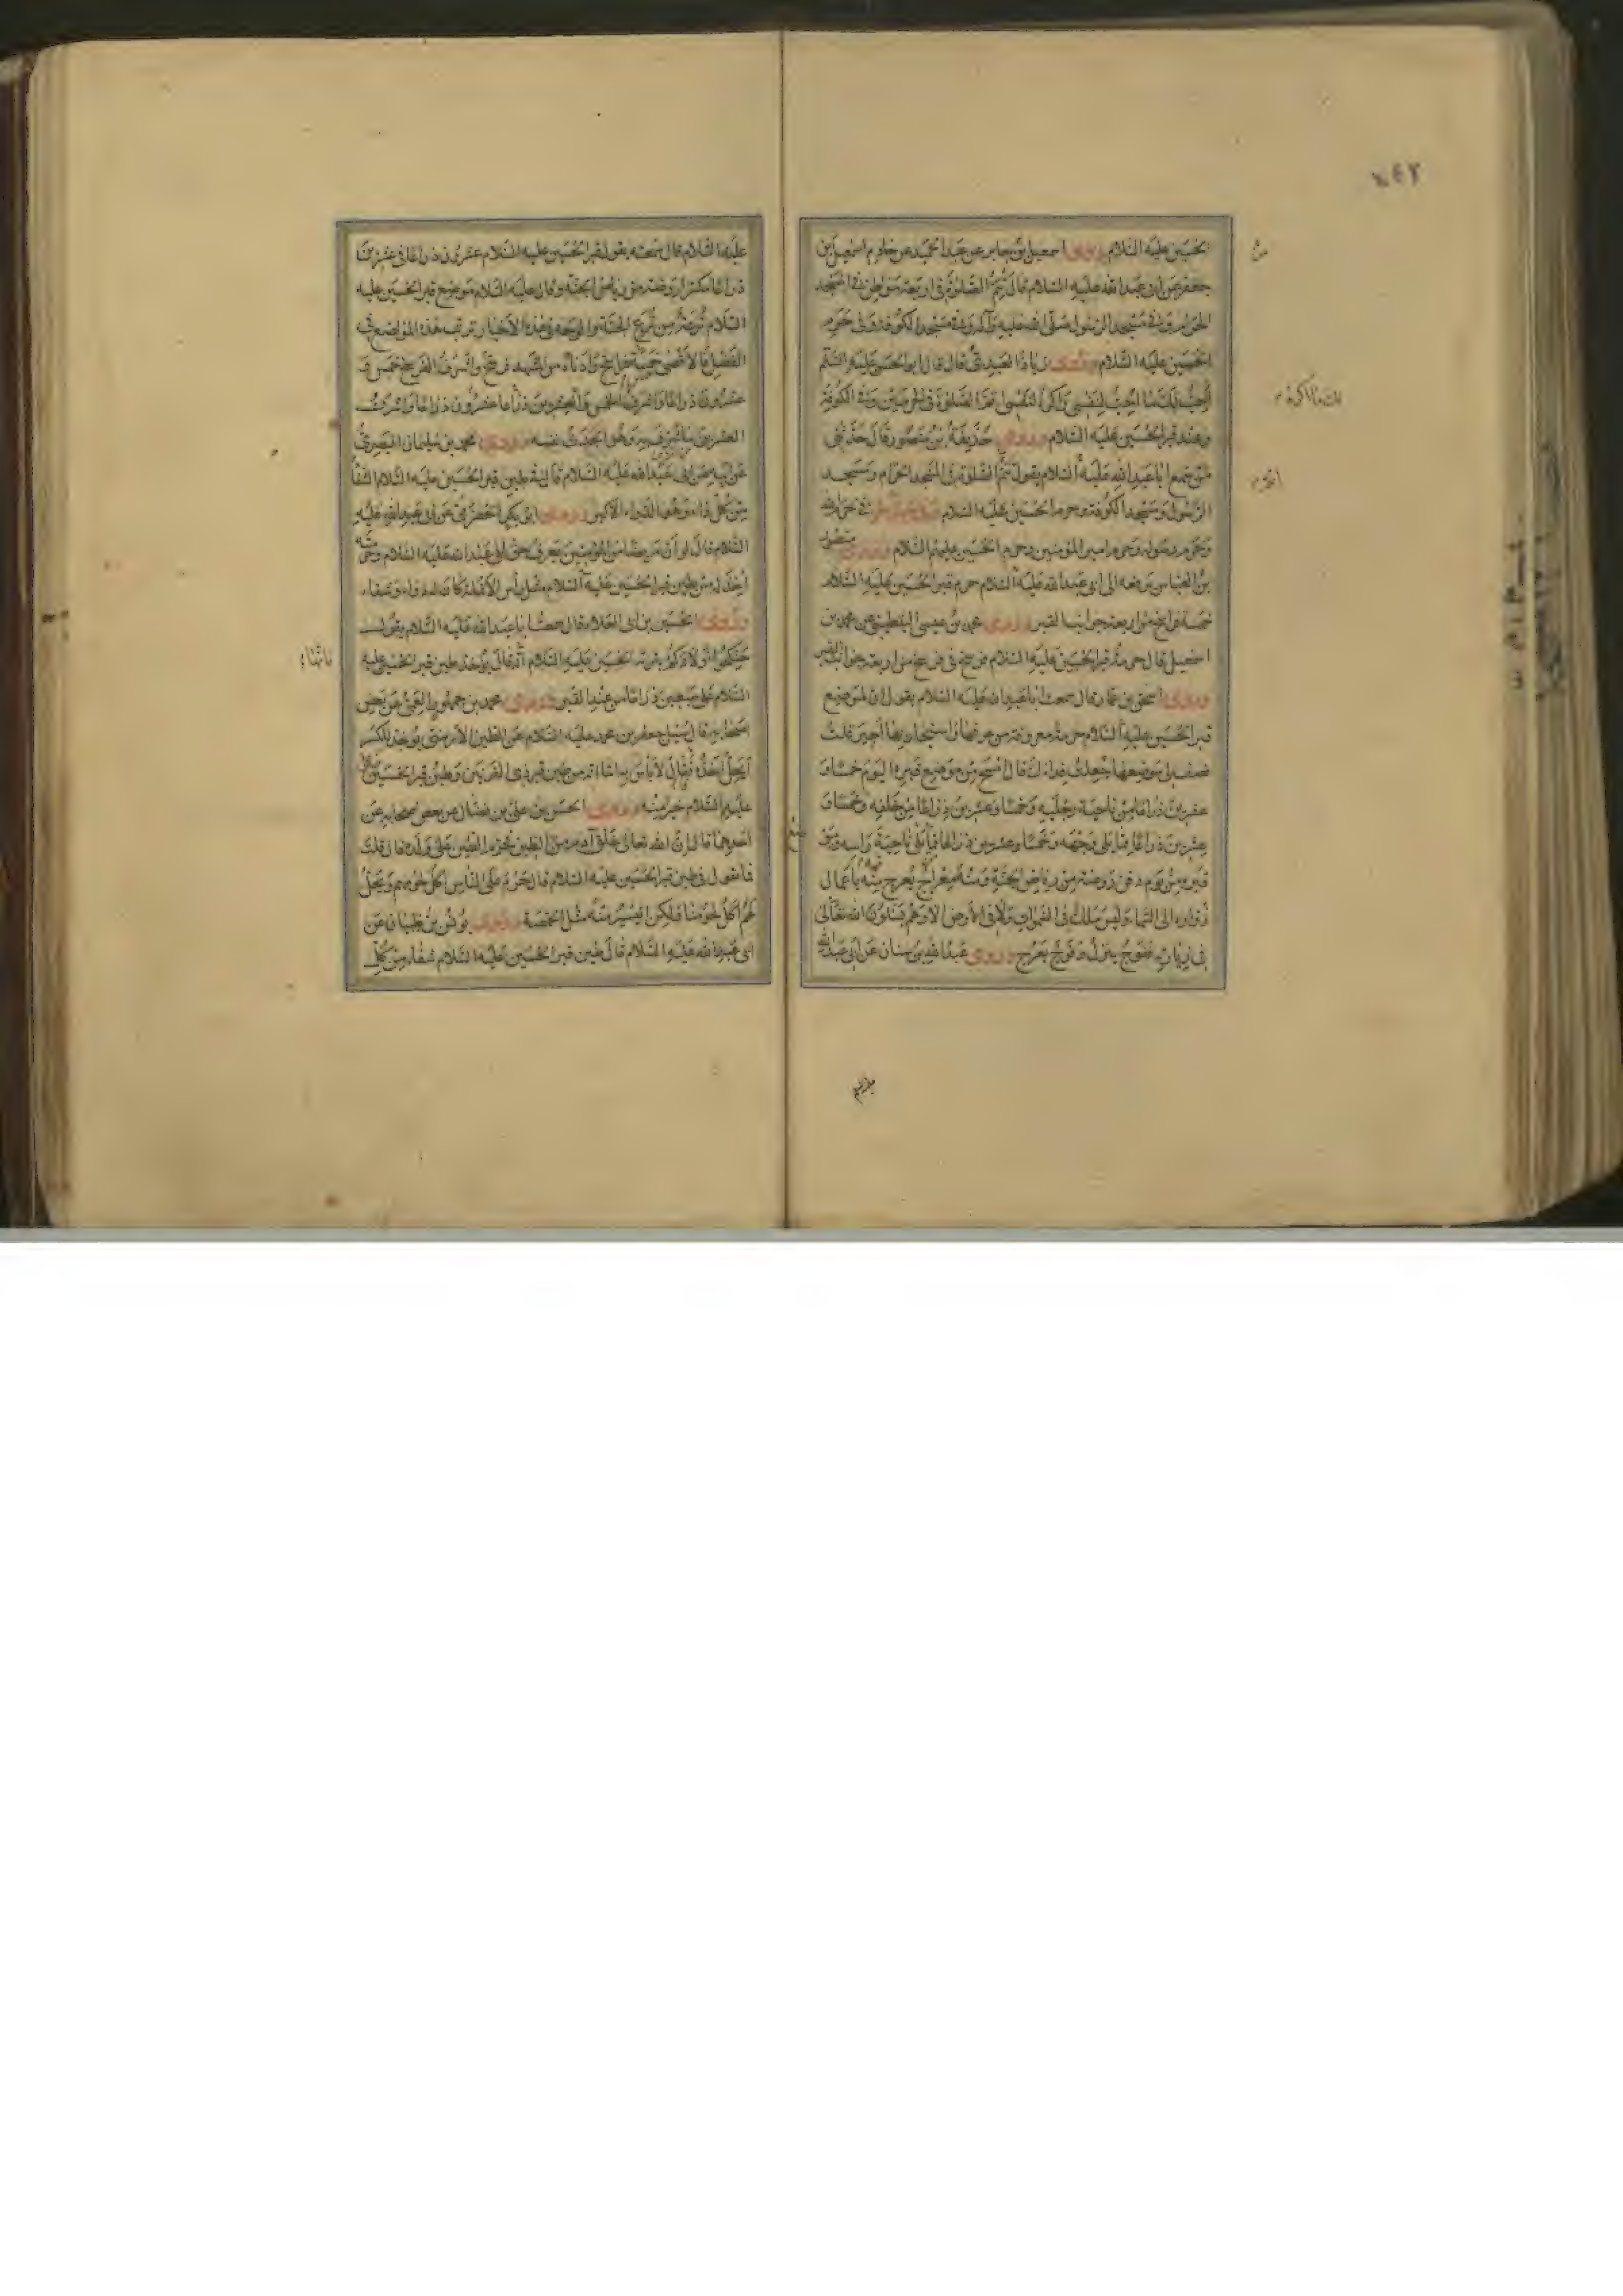 ٢٤٢
الحسين عليه السلام وروى اسمعيل بن جابر عن عبد الحميد عن خادم اسمعيل بن
جعفر عن ابى عبد الله عليه السلام قال تتم الصلوة فى اربعة مواطن فى المسجد
الحرام وفى مسجد الرسول صلى الله عليه وآله وفى مسجد الكوفة وفى حرم
الحسين عليه السلام وروى زياد القندى قال قال ابو الحسن عليه السلم
احب لك ما احب لنفسى واكره لنفسى اتم الصلوة فى الحرمين وفى الكوفة
وعند قبر الحسين عليه السلام وروى حذيفة بن منصور قال حدثنى
من سمع ابا عبد الله عليه السلام يقول تتم الصلوة فى المسجد الحرام ومسجد
الرسول ومسجد الكوفة وحرم الحسين عليه السلام فى حرم الله
وحرم رسوله وحرم امير المؤمنين وحرم الحسين عليهم السلام وروى منصور
بن العباس يرفعه الى ابى عبد الله عليه السلام حرم قبر الحسين عليه السلام
خمسة فراسخ من اربعة جوانب القبر وروى محمد بن عيسى اليقطينى عن محمد بن
اسمعيل قال حرمة قبر الحسين عليه السلام فرسخ فى فرسخ من اربعة جوانب القبر
وروى اسحق بن عمار قال سمعت ابا عبد الله عليه السلام يقول ان لموضع
قبر الحسين عليه السلام حرمة معروفة من عرفها واستجار بها اجير قلت
فصف لى موضعها جعلت فداك قال امسح من موضع قبره اليوم خمسا و
عشرين ذراعا من ناحية رجليه وخمسا وعشرين ذراعا من خلفه وخمسا و
عشرين ذراعا مما يلى وجهه وخمسا وعشرين ذراعا مما يلى ناحية راسه وموضع
قبره من يوم دفن روضة من رياض الجنة ومنه معراج يعرج منه باعمال
زواره الى السماء وليس ملك فى السموات ولا فى الارض الا وهم يسئلون الله تعالى
فى زيارته ففوج ينزل وفوج يعرج وروى عبد الله بن سنان عن ابى عبد الله
عليه السلام قال سمعته يقول قبر الحسين عليه السلام عشرون ذراعا فى عشرين
ذراعا مكسرا روضة من رياض الجنة وقال عليه السلام موضع قبر الحسين عليه
السلام ترعة من ترع الجنة والوجه فى هذه الاخبار ترتب هذه المواضع فى
الفضل فالاقصى خمسة فراسخ وادناه من المشهد فرسخ واشرف الفرسخ خمس و
عشرون ذراعا واشرف الخمس والعشرين ذراعا عشرون ذراعا واشرف
العشرين ما شرف به وهو الجدث نفسه وروى محمد بن سليمان البصرى
عن ابيه عن ابى عبد الله عليه السلام قال فى طين قبر الحسين عليه السلام الشفاء
من كل داء وهو الدواء الاكبر وروى ابو بكر الحضرمى عن ابى عبد الله عليه
السلام قال لو ان مريضا من المؤمنين يعرف حق ابى عبد الله عليه السلام وحرمته
اخذ له من طين قبر الحسين عليه السلام مثل راس الانملة كان له دواء وشفاء
وروى الحسين بن ابى العلاء قال سمعت ابا عبد الله عليه السلام يقول
حنكوا اولادكم بتربة الحسين عليه السلام فانها امان يؤخذ طين قبر الحسين عليه
السلام على سبعين ذراعا من عند القبر وروى محمد بن جمهور العمى عن بعض
اصحابه قال سئل جعفر بن محمد عليه السلام عن الطين الارمنى يؤخذ للكسر
ايحل اخذه فقال لا باس به اما انه من طين قبر ذى القرنين وطين قبر الحسين بن على
عليه السلام خير منه وروى الحسن بن على بن فضال عن بعض اصحابه عن
احدهما قال ان الله تعالى خلق آدم من الطين فحرم الطين على ولده قال قلت
فما تقول فى طين قبر الحسين عليه السلام قال يحرم على الناس اكل لحومهم ويحل
لهم اكل لحومنا ولكن اليسير منه مثل الحمصة وروى يونس بن ظبيان عن
ابى عبد الله عليه السلام قال طين قبر الحسين عليه السلام شفاء من كل